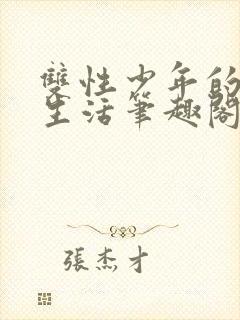 雙性少年的
生活筆趣閣
張杰才